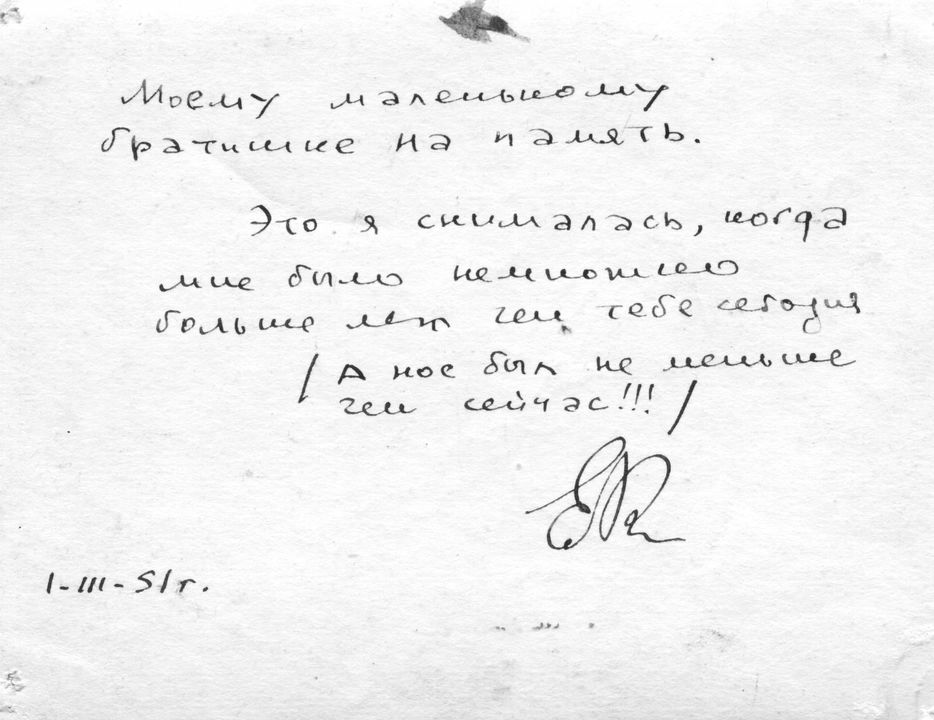 Моему маленькому
братишке на память.
Это я снималась, когда
мне было немножко
больше лет чем тебе сегодня
/А нос был не меньше
чем сейчас!!!/
I-III-51г.